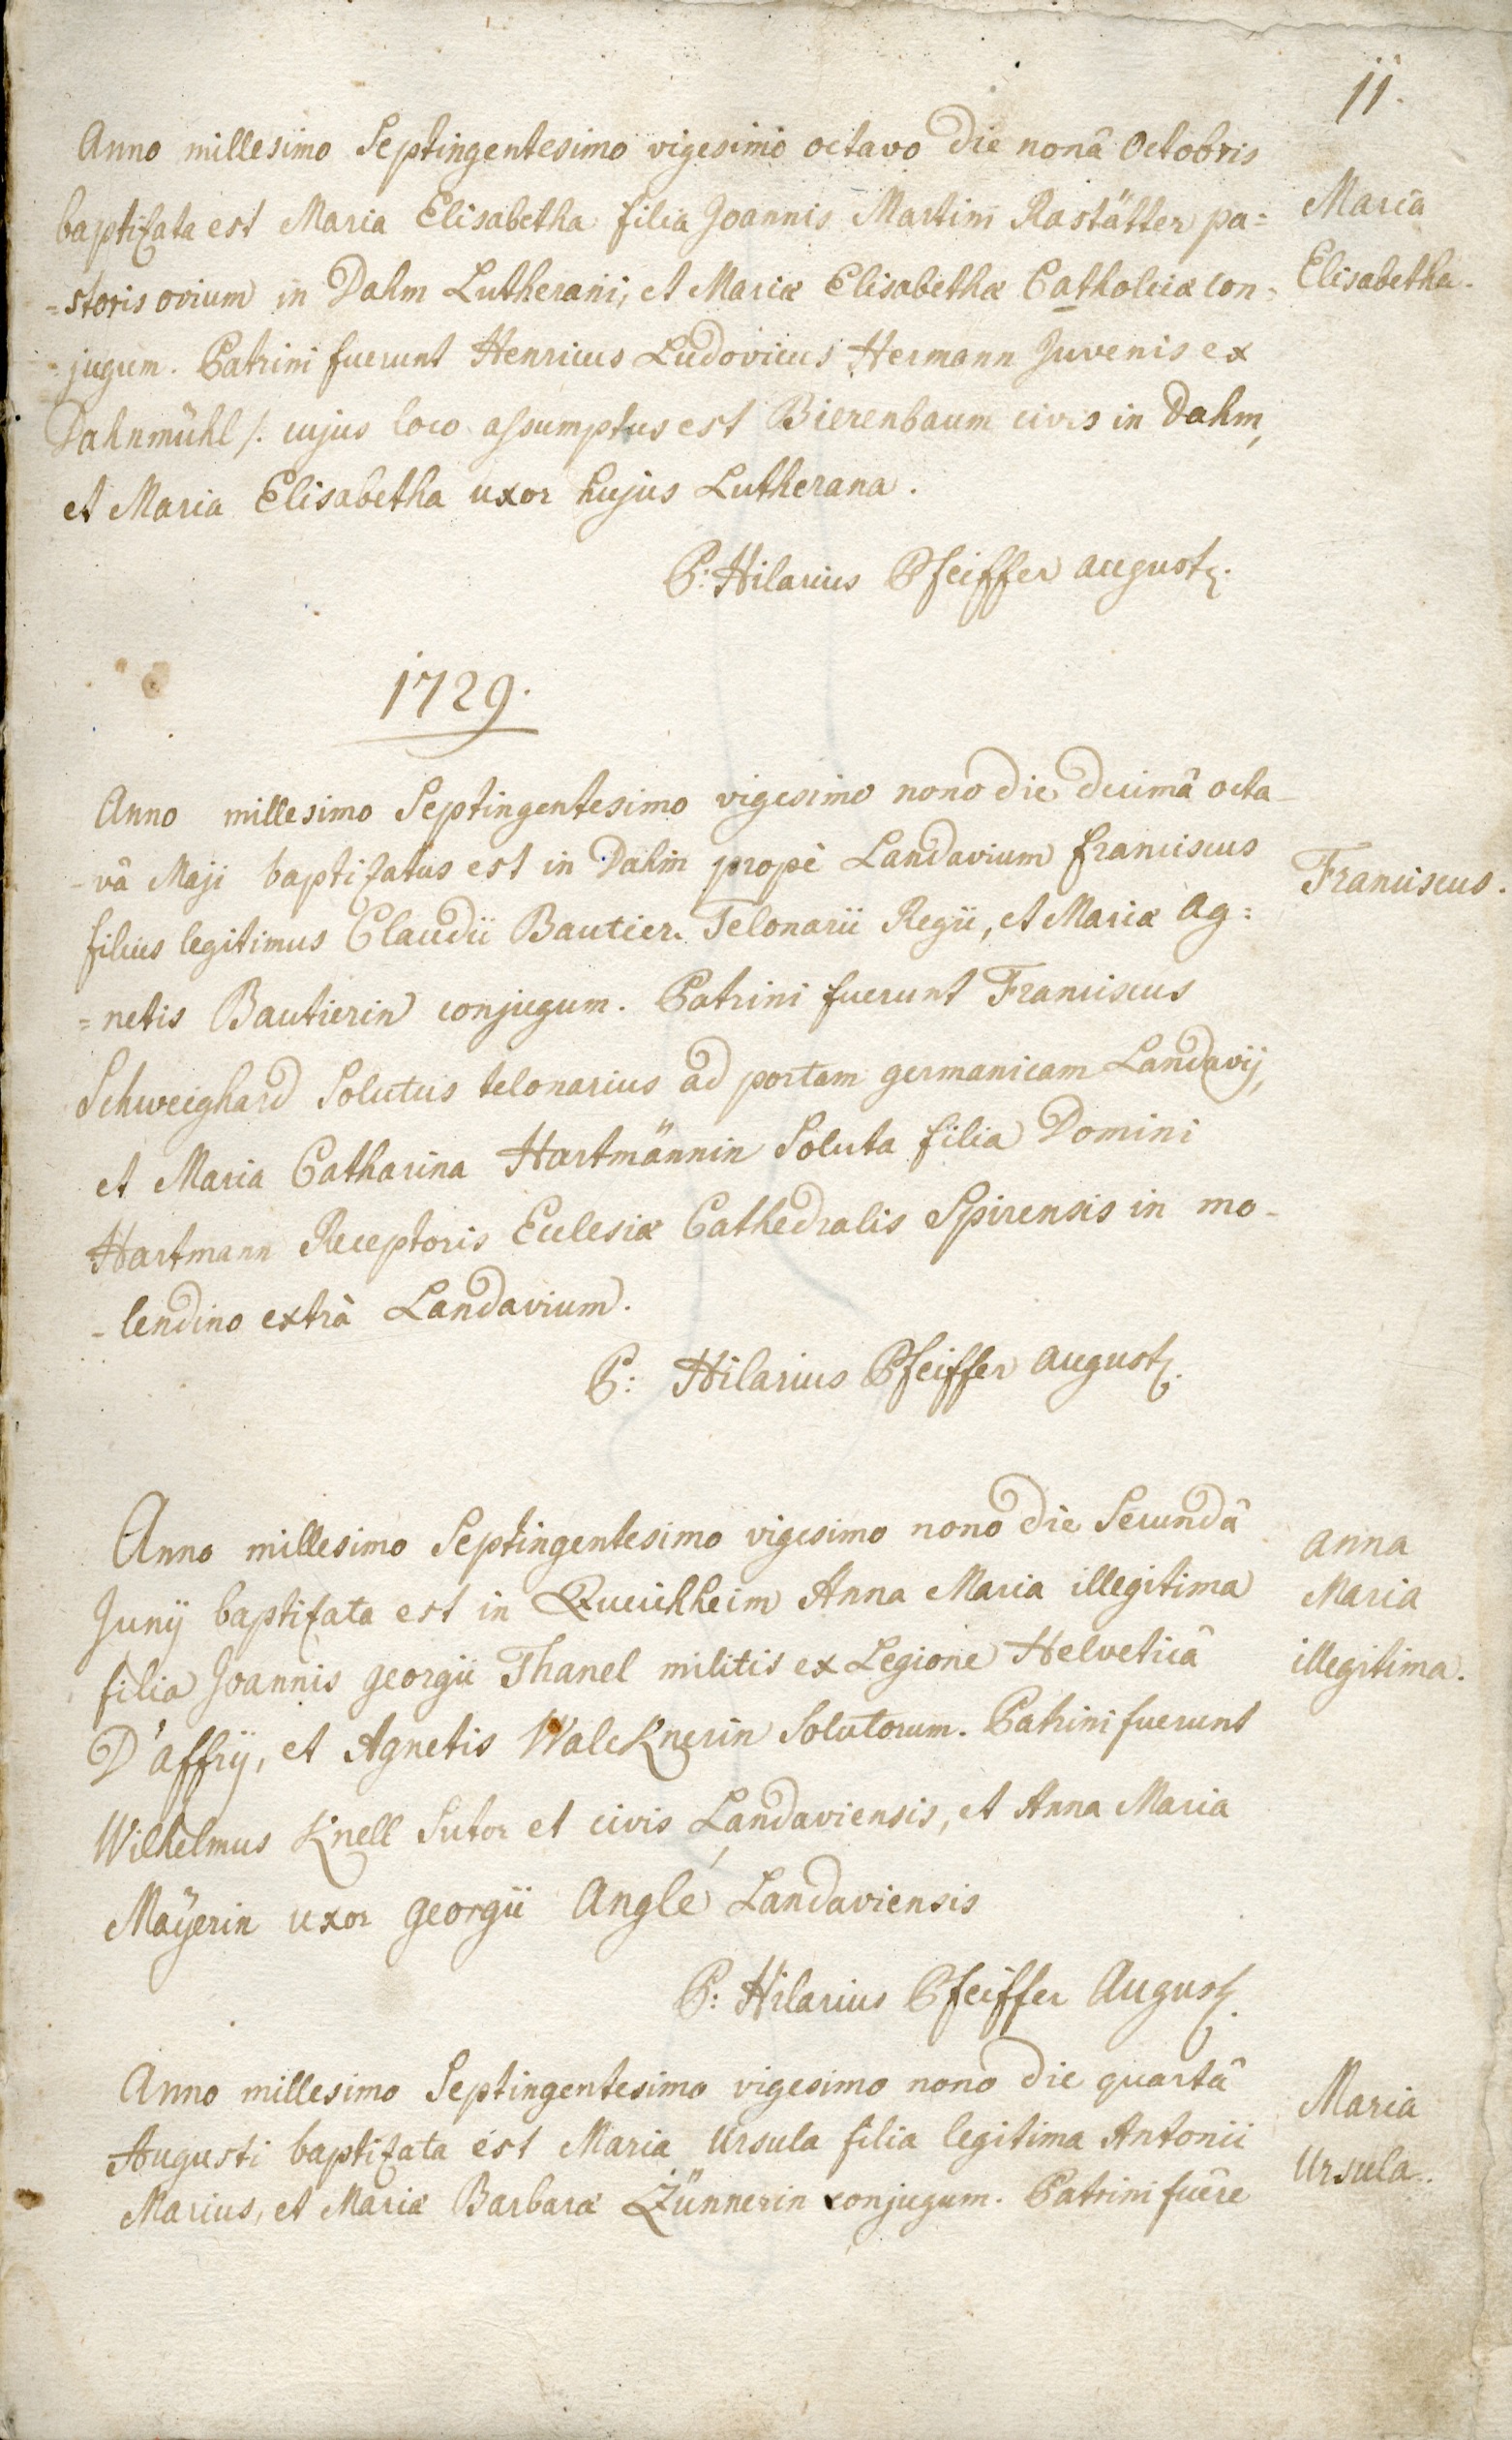 11.
Anno millesimo Septingentesimo vigesimo octavo die nonâ Octobris
baptizata est Maria Elisabetha filia Joannis Martini Rastätter pa=
=storis ovium in Dahm Lutherani, et Mariæ Elisabethæ Catholicæ con=
=jugum. Patrini fuerunt Henricus Ludovicus Hermann Juvenis ex
Dahnmühl /. cujus loco assumptus est Bierenbaum civis in Dahm,
et Maria Elisabetha uxor hujus Lutherana.
P: Hilarius Pfeiffer August.
Maria
Elisabetha.
1729.
Anno millesimo Septingentesimo vigesimo nono die decimâ octa-
-vâ Maji baptizatus est in Dahm propè Landavium franciscus
filius legitimus Claudii Bautier Telonarii Regii, et Mariæ Ag=
=netis Bautierin conjugum. Patrini fuerunt Franciscus
Schweighard Solutus telonarius ad portam germanicam Landavij,
et Maria Catharina Hartmännin Soluta filia Domini
Hartmann Receptoris Ecclesiæ Cathedralis Spirensis in mo-
-lendino extrà Landavium.
P: Hilarius Pfeiffer August.
Franciscus.
Anno millesimo Septingentesimo vigesimo nono die Secundâ
Junij baptizata est in Queichheim Anna Maria illegitima
filia Joannis georgii Thanel militis ex Legione Helveticâ
D'affrij, et Agnetis Walcknerin Solutorum. Patrini fuerunt
Wilhelmus Knell Sutor et civis Landaviensis, et Anna Maria
Maÿerin uxor georgii Anglé Landaviensis
P: Hilarius Pfeiffer August.
Anna
Maria
illegitima.
Anno millesimo Septingentesimo vigesimo nono die quartâ
Augusti baptizata est Maria Ursula filia legitima Antonii
Marius, et Mariæ Barbaræ Zünnerin conjugum. Patrini fuêre
Maria
Ursula.